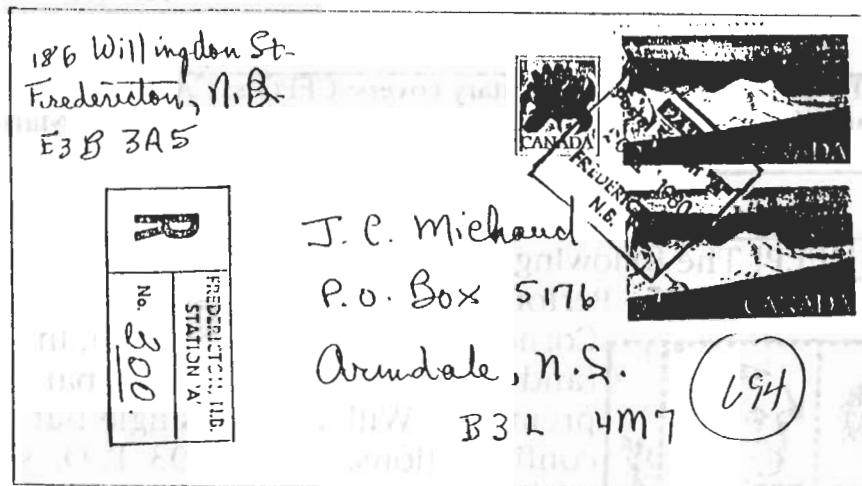 186 Willingdon St.
Fredericton, N.B.
E3B 3A5
CANADA
CANADA
CANADA
1980
FREDERIC
N.B.
R
No. 300.
FREDERICTON, N.B.
STATION 'A'
J. C. Michaud
P.O. Box 5176
Armdale, N.S.
B3L 4M7
194